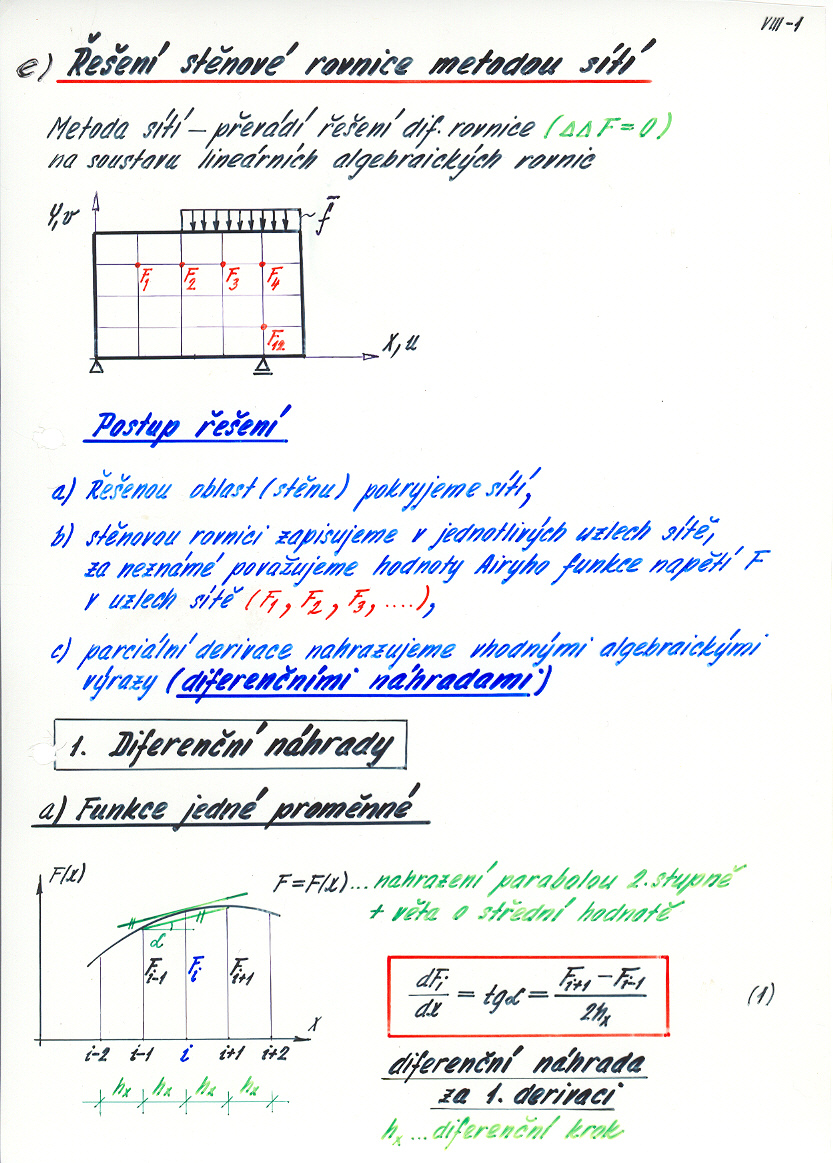 VIII-1
e) Řešení stěnové rovnice metodou sítí
Metoda sítí – převádí řešení dif. rovnice (ΔΔF=0)
na soustavu lineárních algebraických rovnic
y,v
f̄
F₁ F₂ F₃ F₄
F₁₂
x, u
Postup řešení
a) Řešenou oblast (stěnu) pokryjeme sítí,
b) stěnovou rovnici zapisujeme v jednotlivých uzlech sítě,
za neznámé považujeme hodnoty Airyho funkce napětí F
v uzlech sítě (F₁, F₂, F₃, ....),
c) parciální derivace nahrazujeme vhodnými algebraickými
výrazy (diferenčními náhradami)
1. Diferenční náhrady
a) Funkce jedné proměnné
F(x)
F=F(x)... nahrazení parabolou 2. stupně
+ věta o střední hodnotě
α
Fᵢ₋₁ Fᵢ Fᵢ₊₁
x
i-2 i-1 i i+1 i+2
hₓ hₓ hₓ hₓ
dFᵢ/dx = tgα = (Fᵢ₊₁ – Fᵢ₋₁)/2hₓ (1)
diferenční náhrada
za 1. derivaci
hₓ ... diferenční krok